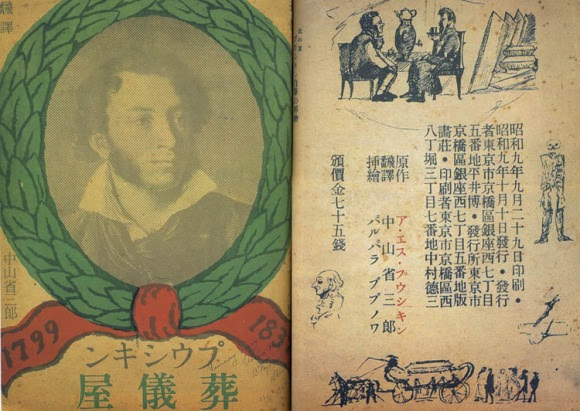 飜譯
中山省三郎
1799
183
プウシキン
葬儀屋
昭和九年九月二十九日印刷・
昭和九年十月十日發行・發行
者東京市京橋區銀座西七丁目
五番地平井博・發行所東京市
京橋區銀座西七丁目五番地版
畫莊・印刷者東京市京橋區西
八丁堀三丁目七番地中村德三
原作 ア・エス・プウシキン
飜譯 中山省三郎
挿繪 バルバラ ブブノワ
頒價金七十五錢